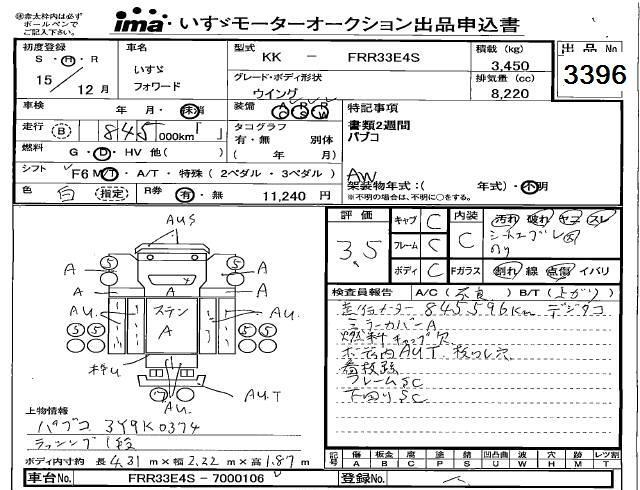 ※赤太枠内は必ず
ボールペンで
ご記入下さい。
ima いすゞモーターオークション出品申込書
初度登録
S・H・R
15 / 12月
車名
いすゞ
フォワード
型式
KK － FRR33E4S
積載 (kg)
3,450
グレード・ボディ形状
ウイング
排気量 (cc)
8,220
出品No
3396
車検 年 月・抹消
装備 A R R
C S W
特記事項
書類2週間
パブコ
走行 B 845 000km
タコグラフ
有・無 別体
( 年 月)
燃料 G・D・HV 他( )
シフト F6 M/T・A/T・特殊 ( 2ペダル・3ペダル )
AW
架装物年式：( 年式)・不明
※不明の場合は、不明に○をする。
色 白 (指定)
R券 有・無 11,240 円
評価
3.5
キャブ C
フレーム C
ボディ C
内装
C
汚れ 破れ ヤニ スレ
Fガラス 割れ 線 点傷 イバリ
検査員報告 A/C (不良) B/T (上がり)
走行メーター 845596km デジタコ
ミラーカバーA
看板跡
フレームSC
下回りSC
AUS
5
5
A
A
A
A
AU.
ステン
A
AU.
5 5
5 5
AU.
AU.T
上物情報
パブコ 3Y9K0374
ラッシング1段
ボディ内寸約 長 4.31 m × 幅 2.22 m × 高 1.87 m
記号 傷 A 板金 B 腐 C 塗 P 錆 S 凹凸曲 U 波 W 穴 H 跡 M レツ割 T
車台No. FRR33E4S－7000106
登録No.